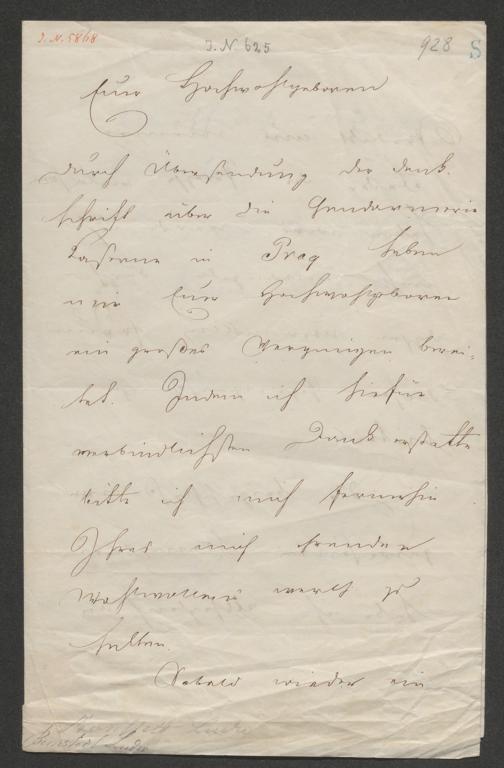 J. N. 5868
J. N. 625
928
S
Euer Hochwohlgeboren
durch Übersendung der Denk-
schrift über die Gendarmerie
Kaserne in Prag haben
mir Euer Hochwohlgeboren
ein großes Vergnügen berei-
tet. Indem ich hiefür
verbindlichsten Dank erstatte
bitte ich mich fernerhin
Ihres mich
Wohlwollens werth zu
halten.
Sobald wieder ein